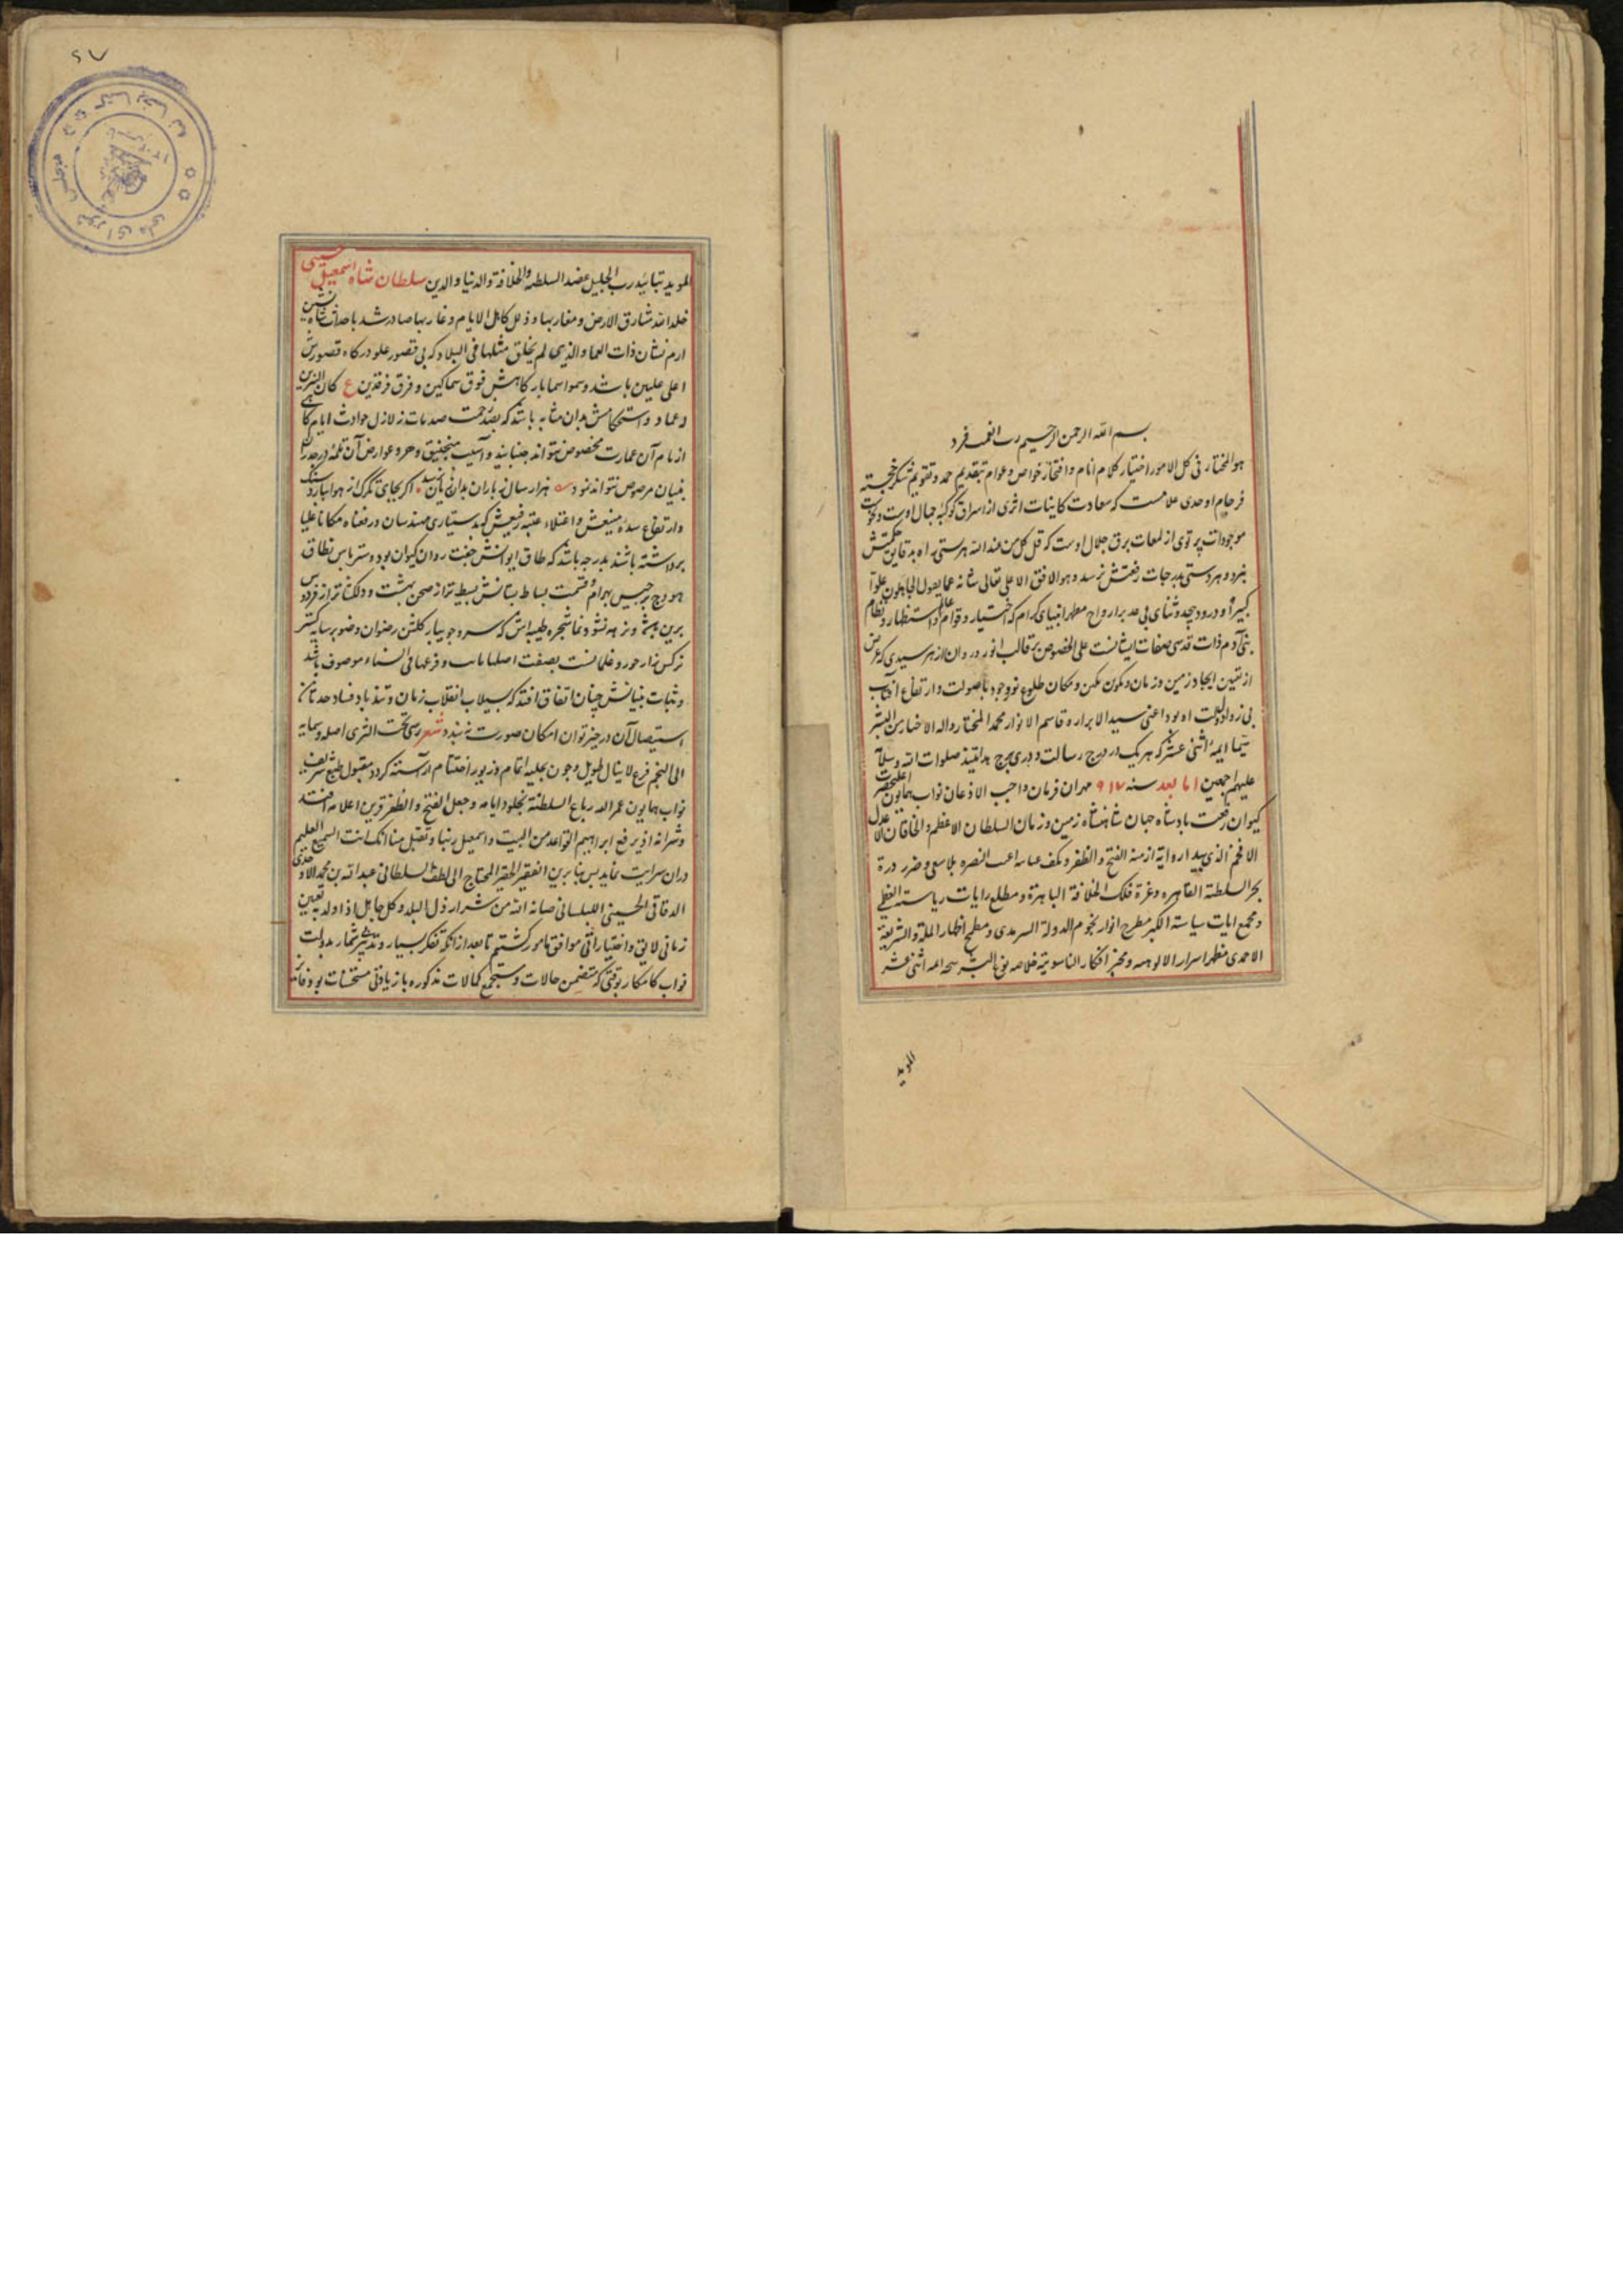 بسم الله الرحمن الرحیم رب انعمت فزد
هو المختار فی کل الامور اختیار کلام انام و افتخار خواص و عوام بتقدیم حمد و تقویم شکر خجسته
فرجام او حدی علامست که سعادت کاینات اثری از اسراق کوکبه جمال اوست و
موجودات پرتوی از لمعات برق جلال اوست که قل کل من عند الله هر هستی راه بدقایق حکمتش
نبرد و هر دستی بدرجات رفعتش نرسد و هو بالافق الاعلی تعالی شانه عما یقول الجاهلون علوا
کبیرا و درود بیحد و ثنای بی عد بر ارواح مطهر انبیای کرام که اختیار و قوام عالم و استظهار و نظام
بنی آدم ذات قدسی صفات ایشانست علی الخصوص بر قالب انور و روان ازهر سیدی که غرض
از تعیین ایجاد زمین و زمان و تکون مکن و مکان طلوع نور وجود با صولت و ارتفاع آفتاب
بی زوال دولت او بود اعنی سید الابرار و قاسم الانوار محمد المختار و اله الاخیار من البشر
سیما ایمهٔ اثنی عشر که هر یک در درج رسالت و دری برج هدایتند صلوات الله و سلامه
علیهم اجمعین اما بعد سنه ۹۱۷ مهران فرمان واجب الاذعان نواب همایون اعلیحضرت
کیوان رفعت بادشاه جهان شاهنشاه زمین و زمان السلطان الاعظم و الخاقان الاعدل
الافخم الذی بیداره ازمنه الفتح و الظفر و بکف النصره بلا سعی و ضرر درة
بحر السلطنة القاهره و غرة فلک الخلافة الباهرة و مطلع رایات ریاسته العظمی
و مجمع ایات سیاسة الکبر مطرح انوار نجوم الدولة السرمدی و مطمح اظهار الملة و الشریعة
الاحمدی مظهر اسرار الالوهیه و مخبر افکار الناسوتیة خلاصه نوع البشر ایمه اثنی عشر
الموید
۶۷
الموید بتایید رب الجلیل عضد السلطنه و الخلافة و الدنیا و الدین سلطان شاه اسمعیل حسینی
خلد الله مشارق الارض و مغاربها و ذلل کاهل الایام و غاربها صادر شد باحداث شاه نشین
ارم نشان ذات العماد الذی لم یخلق مثلها فی البلاد که بی قصور علو درکاه قصورش
اعلی علیین باشد و سمو اسما بارکاهش فوق سماکین و فرق فرقدین ع کان
و عماد و استحکامش بدان مثابه باشد که بصدمت صدمات زلازل حوادث ایام
از بام آن عمارت مخصوص نتواند جنبانید و آسیب منجنیق دهر و عوارض آن ثلمهٔ در جدران
بنیان مرصوص نتواند نمود هزار سال نه باران بدان نه ... اکر بجای تکرک از هوا ببارد سنک
و ارتفاع سدهٔ منیعش و اعتلاء عتبه رفیعش که بدستیاری مهندسان و رفعناه مکانا علیا
برداشته باشند بدرجه باشد که طاق ایوانش جفت رواق کیوان بود و ستر باس نطاق
هودج برجیس بهرام و قسمت بساط بستانش بسیط تر از صحن بهشت و دلکشاتر از فردوس
برین و نشو و نما شجره طیبه اش که سرو جویبار کلشن رضوان و صنوبر سایه کستر
نرکس زار حور و غلمانست بصفت اصلها ثابت و فرعها فی السماء موصوف باشد
و ثبات بنیانش چنان اتفاق افتد که سیلاب انقلاب زمان و تند باد فساد حدثان
استیصال آن در حیز توان امکان صورت نه بندد شعر رسی تحت الثری اصله و سما به
الی النجم فرع لا ینال طویل و چون بحلیه اتمام و زیور اختتام آراسته کردد مقبول طبع شریف
نواب همایون عمر الله رباع السلطنة بخلود ایامه و جعل الفتح و الظفر قرین اعلامه افتد
و ثمرانه اذ یرفع ابراهیم القواعد من البیت و اسمعیل ربنا و تقبل منا انک انت السمیع العلیم
دران سرایت نماید بس بنا برین الفقیر الحقیر المحتاج الی لطف السلطانی عبد الله بن محمد
الدقاقی الحسینی صانه الله من شرار ذل البلد و کل جابل اذا ولد به تعیین
زمانی لایق و اختیار اتی موافق مامور کشتم تا بعد از آنکه تفکر بسیار و تدبر بیشمار بدولت
نواب کامکار بوقتی که متضمن حالات و مستجمع کمالات مذکوره با زیادتی مستحسنات بود